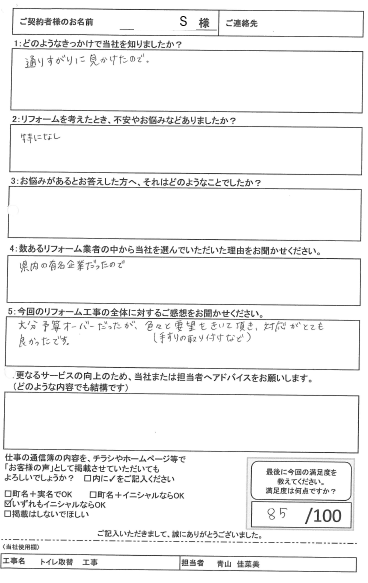 ご契約者様のお名前 S 様 ご連絡先
1：どのようなきっかけで当社を知りましたか？
通りすがりに見かけたので。
2：リフォームを考えたとき、不安やお悩みなどありましたか？
特になし
3：お悩みがあるとお答えした方へ、それはどのようなことでしたか？
4：数あるリフォーム業者の中から当社を選んでいただいた理由をお聞かせください。
県内の有名企業だったので
5：今回のリフォーム工事の全体に対するご感想をお聞かせください。
大分予算オーバーだったが、色々と要望をきいて頂き、対応がとても
良かったです。 (手すりの取り付けなど)
更なるサービスの向上のため、当社または担当者へアドバイスをお願いします。
（どのような内容でも結構です）
仕事の通信簿の内容を、チラシやホームページ等で
「お客様の声」として掲載させていただいても
よろしいでしょうか？ □内に✓をご記入ください
□町名＋実名でOK □町名＋イニシャルならOK
☑いずれもイニシャルならOK
□掲載はしないでほしい
最後に今回の満足度を
教えてください。
満足度は何点ですか？
85 /100
ご記入いただきまして、誠にありがとうございました。
（当社使用欄）
工事名 トイレ取替 工事 担当者 青山 佳菜美